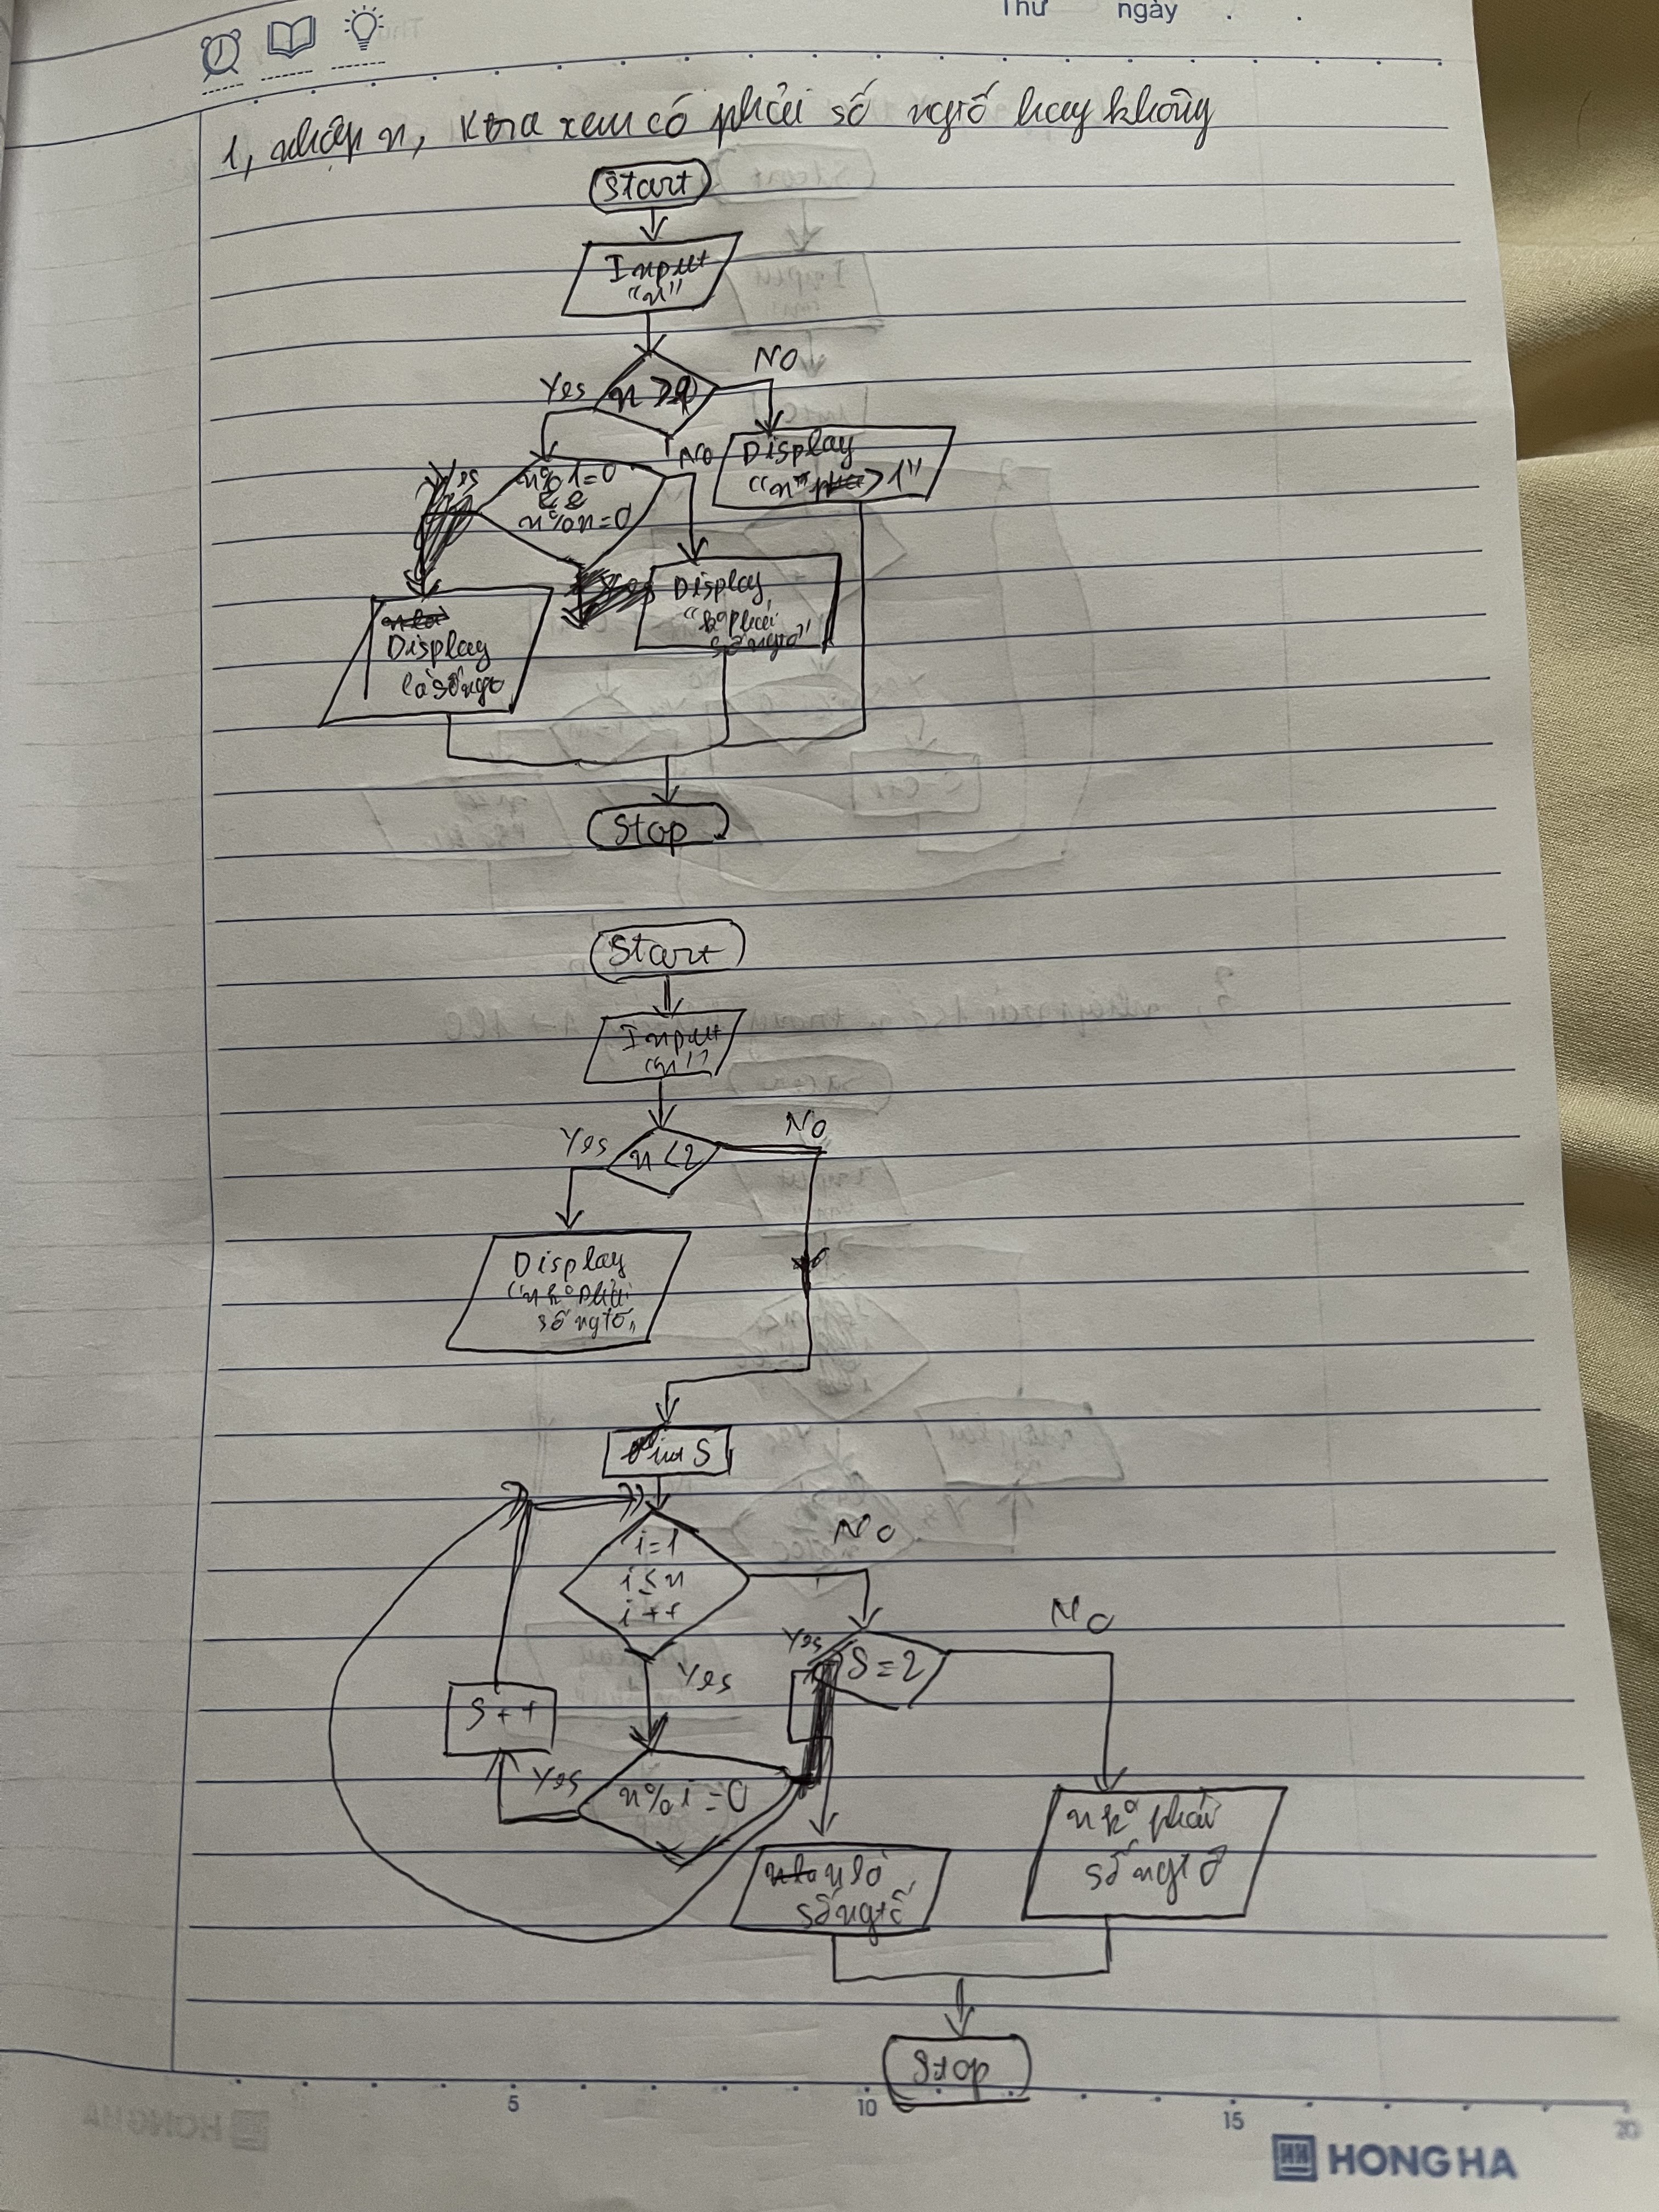 Thứ ngày . .
1, nhập n, Ktra xem có phải số ngtố hay không
Start
Input
"n"
Yes
NO
Display
"n > 1"
Yes
n%1=0
&&
n%n=0
No
Display
là số ngto
Display
"kº phải
số ngtố"
Stop
Start
Input
"n"
Yes
n<2
No
Display
"n kº phải
số ngtố"
S
i=1
i≤n
i++
No
Yes
Yes
S=2
No
S++
Yes
n%i=0
n là
số ngtố
n kº phải
số ngtố
Stop
5 10 15 20
HONG HA